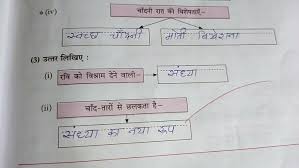 * (iv) चाँदनी रात की विशेषताएँ–
स्वच्छ चाँदनी मोती बिखेरना
(3) उत्तर लिखिए :
(i) रवि को विश्राम देने वाली– संध्या
(ii) चाँद-तारों से छलकता है–
संध्या का नया रूप